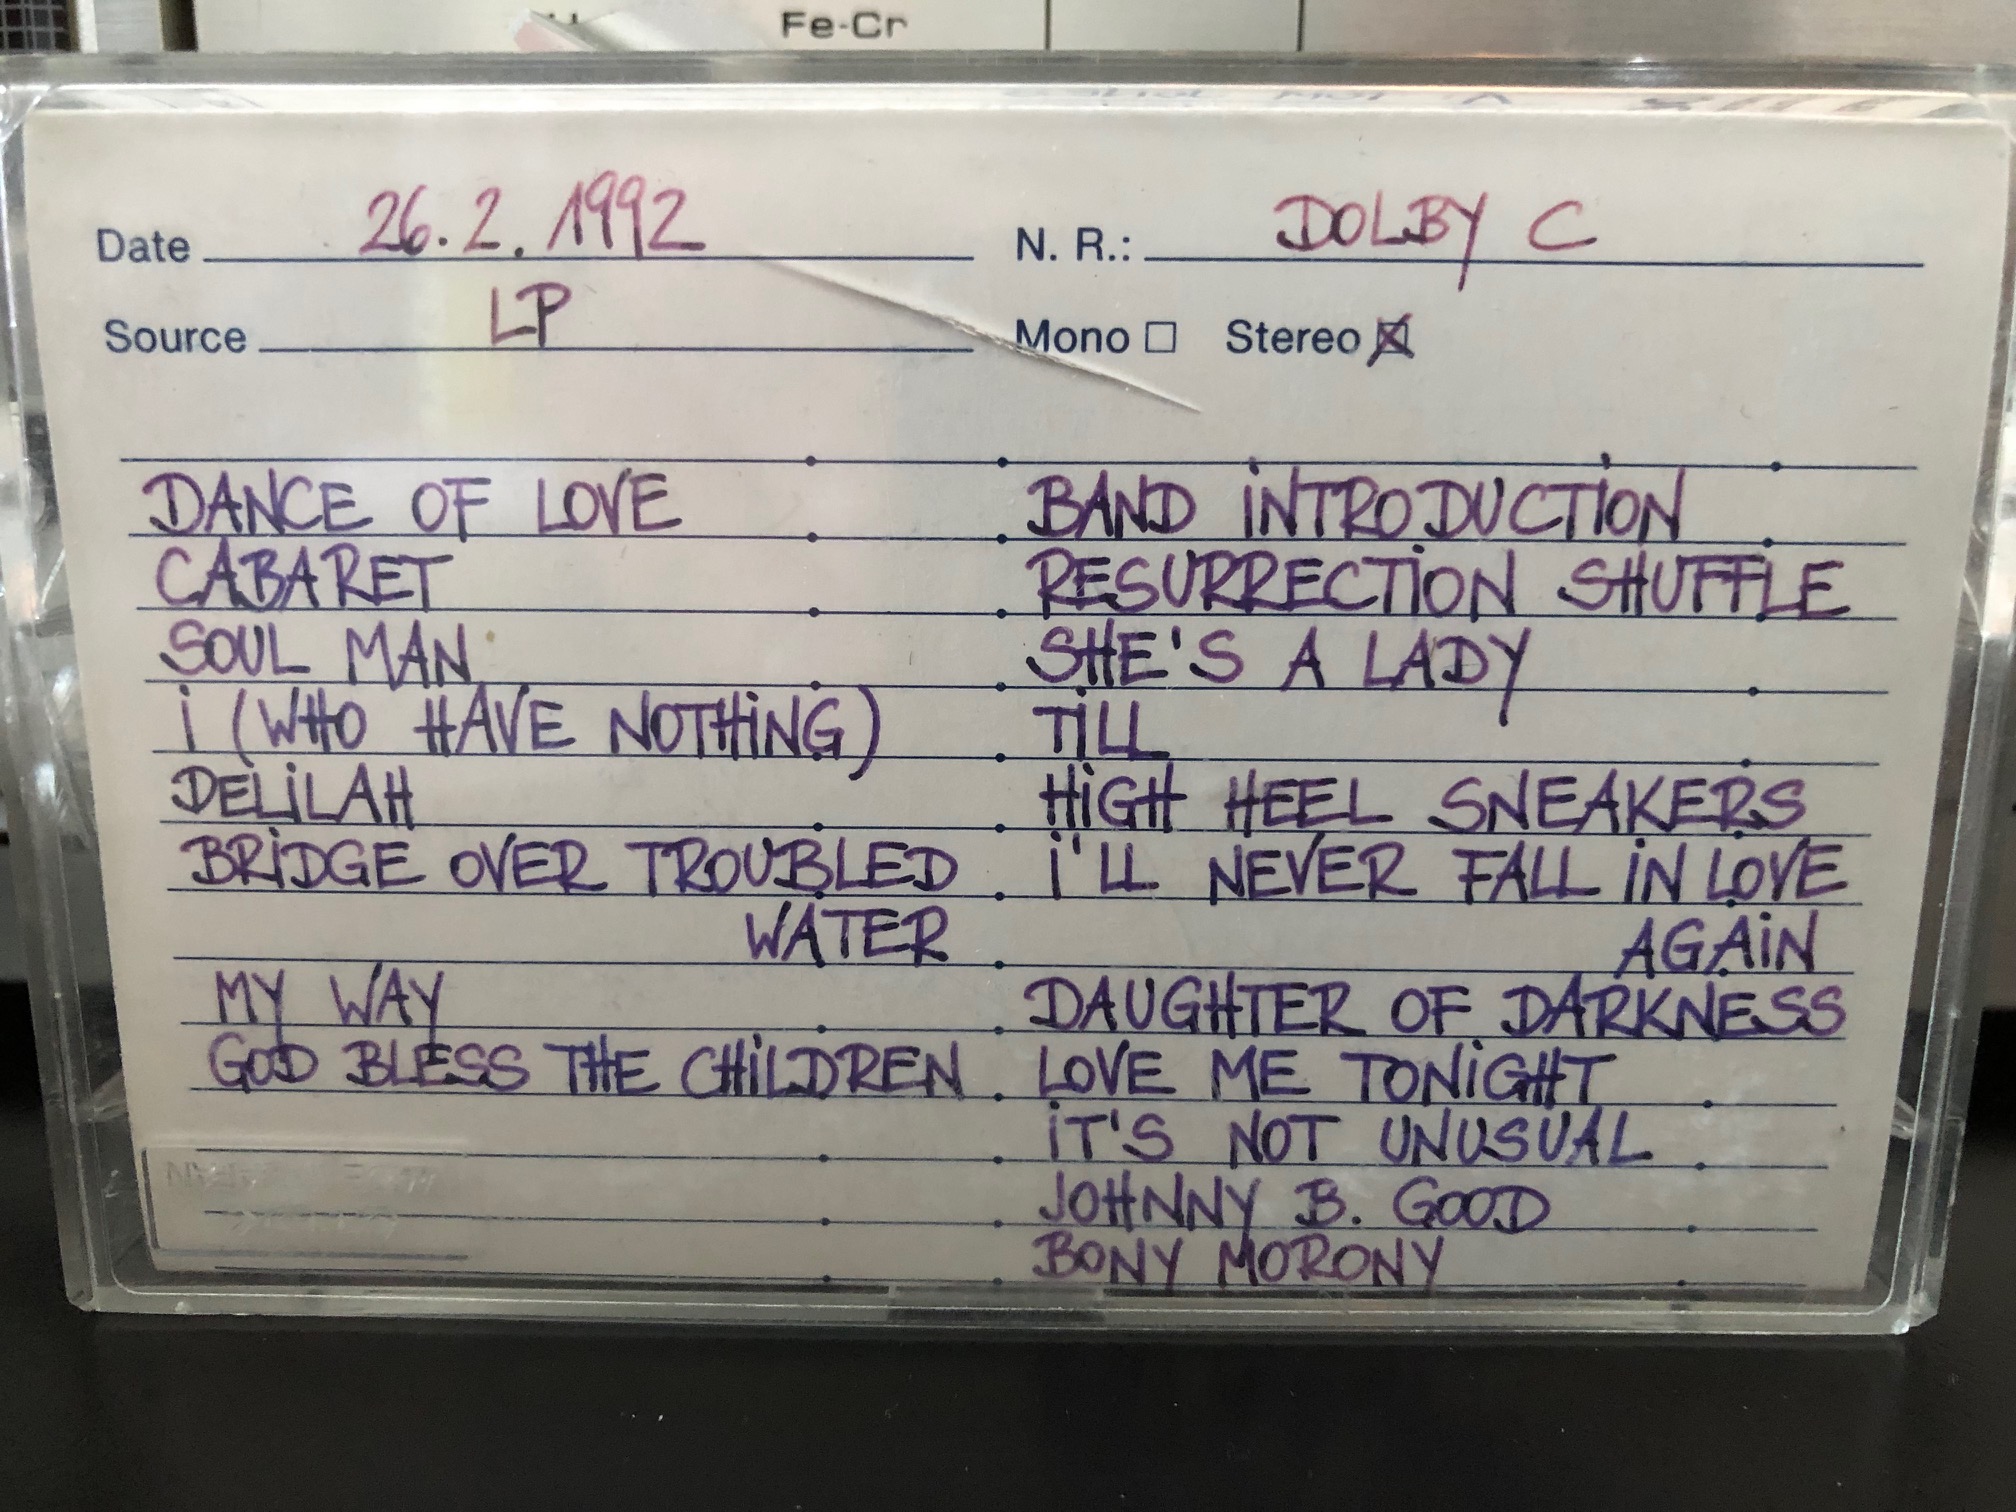 Fe-Cr
Date 26.2.1992 N. R.: DOLBY C
Source LP Mono Stereo
DANCE OF LOVE
CABARET
SOUL MAN
i (WHO HAVE NOTHiNG)
DELiLAH
BRiDGE OVER TROUBLED
WATER
MY WAY
GOD BLESS THE CHiLDREN
BAND iNTRODUCTiON
RESURRECTiON SHUFFLE
SHE'S A LADY
TiLL
HiGH HEEL SNEAKERS
i'LL NEVER FALL iN LOVE
AGAiN
DAUGHTER OF DARKNESS
LOVE ME TONiGHT
iT'S NOT UNUSUAL
JOHNNY B. GOOD
BONY MORONY